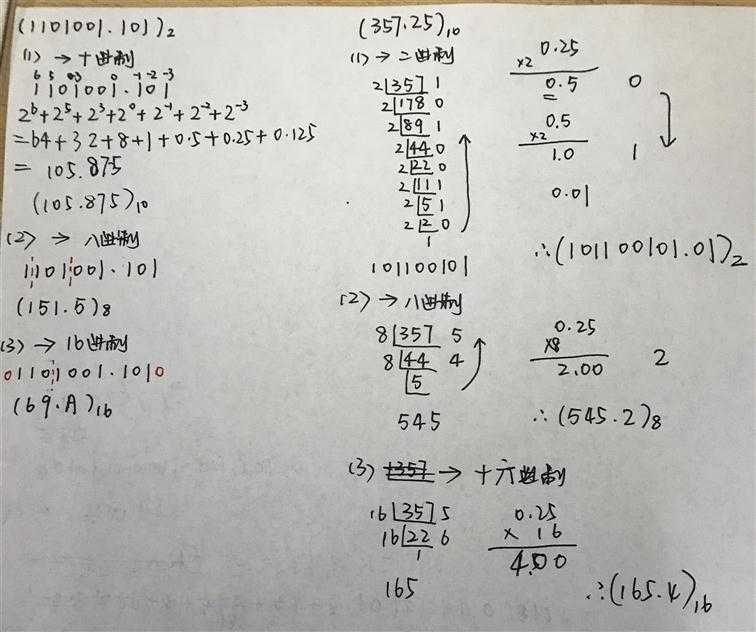 (1101001.101)₂
(1) → 十进制
6 5 3 0 -1 -2 -3
1101001.101
2⁶+2⁵+2³+2⁰+2⁻¹+2⁻²+2⁻³
=64+32+8+1+0.5+0.25+0.125
= 105.875
(105.875)₁₀
(2) → 八进制
1101001.101
(151.5)₈
(3) → 16进制
01101001.1010
(69.A)₁₆
(357.25)₁₀
(1) → 二进制
2 357 1
2 178 0
2 89 1
2 44 0
2 22 0
2 11 1
2 5 1
2 2 0
1
101100101
0.25
×2
0.5 0
0.5
×2
1.0 1
0.01
∴(101100101.01)₂
(2) → 八进制
8 357 5
8 44 4
5
545
0.25
×8
2.00 2
∴(545.2)₈
(3) 357 → 十六进制
16 357 5
16 22 6
1
165
0.25
× 16
4.00
∴(165.4)₁₆